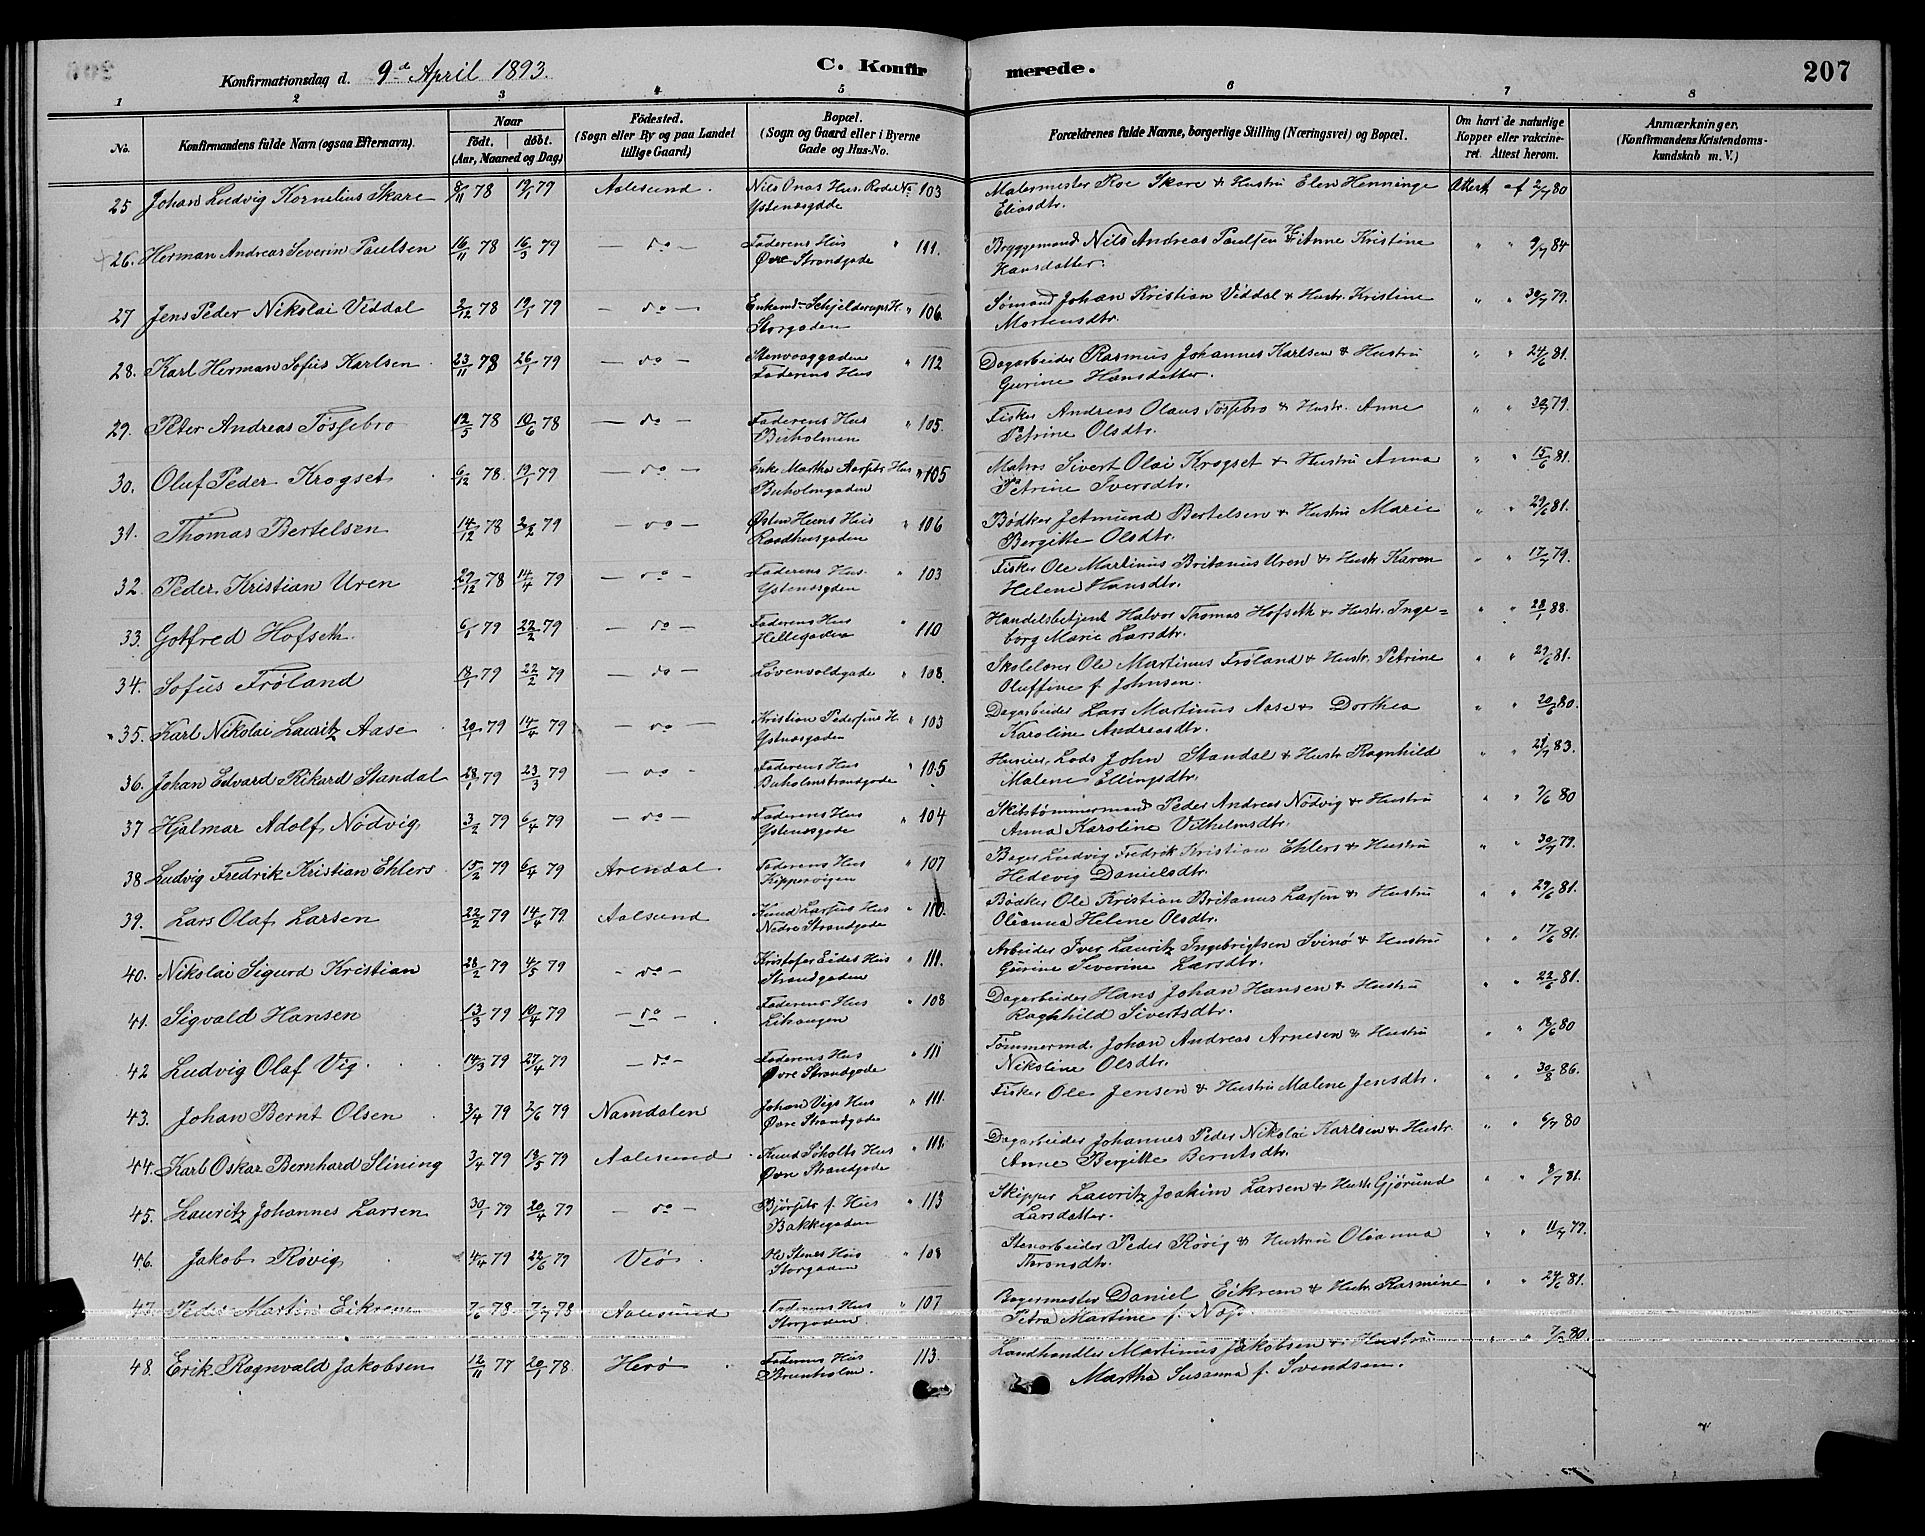 Konfirmationsdag d. 9de April 1893.
C. Konfirmerede.
207
1 2 3 4 5 6 7 8
No.
Konfirmandens fulde Navn (ogsaa Efternavn).
Naar
födt. döbt.
(Aar, Maaned og Dag)
Födested.
(Sogn eller By og paa Landet tillige Gaard)
Bopæl.
(Sogn og Gaard eller i Byerne Gade og Hus-No.
Forældrenes fulde Navne, borgerlige Stilling (Næringsvei) og Bopæl.
Om havt de naturlige Kopper eller vakcineret. Attest herom.
Anmærkninger.
(Konfirmandens Kristendomskundskab m. V.)
25 Johan Ludvig Kornelius Skare 8/11 78 19/1 79 Aalesund. Nils Onas Hus. Rode No 103
Ystenæsgade
Malermester Roe Skare & Hustru Elen Henninge
Eliasdtr.
Attest af 2/7 80
26. Herman Andreas Severin Paulsen 16/11 78 16/3 79 — do — Faderens Hus " 111.
Øvre Strandgade
Bryggemand Nils Andreas Paulsen & H Anne Kristine
Hansdatter.
" " 9/7 84
27 Jens Peder Nikolai Viddal 2/12 78 19/1 79 — do — Enkemd. Schjelderups H. " 106
Storgaden
Sømand Johan Kristian Viddal & Hustr. Kristine
Mortensdtr.
" " 30/7 79.
28. Karl Herman Sofus Karlsen 23/11 78 26/1 79 — do — Stenvaaggaden " 112
Faderens Hus
Dagarbeider Rasmus Johannes Karlsen & Hustru
Gurine Hansdatter.
" " 24/6 81.
29. Peter Andreas Tøssebro 12/5 78 10/6 78 — do — Faderens Hus " 105.
Buholmen
Fisker Andreas Olaus Tøssebro & Hustr. Anne
Petrine Olsdtr.
" " 30/7 79.
30. Oluf Peder Krogset 6/12 78. 19/1 79 — do — Enke Marthe Aarseths Hus " 105
Buholmgaden
Matros Sivert Olai Krogset & Hustru Anna
Petrine Iversdtr.
" " 15/6 81.
31. Thomas Bertelsen 14/12 78 2/2 79 — do — Østen Hems Hus " 106
Raadhusgaden
Bødker Jetmund Bertelsen & Hustru Marie
Bergitte Olsdtr.
" " 29/6 81.
32. Peder Kristian Uren 29/12 78 14/4 79 — do — Faderens Hus. " 103
Ystenæsgden
Fisker Ole Martinus Britanus Uren & Hustr Karen
Helene Hansdtr.
" " 17/7 79.
33. Gotfred Hofseth. 6/1 79 22/2 79 — do — Faderens Hus " 110
Hellegaden
Handelsbetjent Halvor Thomas Hofseth & Hustr. Inge=
borg Marie Larsdtr.
" " 28/1 88.
34. Sofus Frøland 13/1 79 22/2 79 — do — Løvenvoldgade " 108.
Skolelærer Ole Martinus Frøland & Hustr. Petrine
Oluffine f. Johnsen.
" " 29/6 81.
35. Karl Nikolai Lauritz Aase 20/1 79 14/4 79 — do — Kristian Pedersens H. " 103
Ystnæsgaden
Dagarbeider Lars Martinus Aase & Dorthea
Karoline Andreasdtr.
" " 30/6 80.
36. Johan Edvard Rikard Standal 28/1 79 23/3 79 — do — Faderens Hus " 105
Buholmstrandgade
Huseier, Lods John Standal & Hustr Ragnhild
Malene Ellingsdtr.
" " 83.
37 Hjalmar Adolf Nødvig 3/2 79 6/4 79 — do — Faderens Hus " 104
Ystenæsgade
Skibstømmermand Peder Andreas Nødvig & Hustru
Anna Karoline Vilhelmsdtr.
" " 7/6 80
38 Ludvig Fredrik Kristian Ehlers 15/2 79 6/4 79 Arendal. Faderens Hus " 107
Kippervigen
Bager Ludvig Fredrik Kristian Ehlers & Hustru
Hedevig Danielsdtr.
" " 30/7 79.
39. Lars Olaf Larsen 22/2 79 14/4 79 Aalesund Knud Larsens Hus " 110.
Nedre Strandgade
Bødker Ole Kristian Britanus Larsen & Hustru
Oleanna Helene Olsdtr.
" " 29/6 81.
40. Nikolai Sigurd Kristian 28/2 79 4/5 79 — do — Kristofer Eides Hus " 111.
Strandgaden
Arbeider Iver Lauritz Ingebrigtsen Svinø & Hustru
Gurine Severine Larsdtr.
" " 17/6 81.
41. Sigvald Hansen 13/3 79 10/4 79 — do — Faderens Hus " 108
Lihaugen
Dagarbeider Hans Johan Hansen & Hustru
Ragnhild Sivertsdtr.
" " 22/6 81.
42 Ludvig Olaf Vig. 14/3 79 27/4 79 — do — Faderens Hus " 111
Øvre Strandgade
Tømmermd. Johan Andreas Arnesen & Hustru
Nikoline Olsdtr.
" " 18/6 80
43. Johan Bernt Olsen 3/4 79 2/6 79 Namdalen Johan Vigs Hus " 111.
Øvre Strandgade
Fisker Ole Jensen & Hustru Malene Jensdtr.
" " 30/8 86.
44. Karl Oskar Bernhard Slining 3/4 79 18/5 79 Aalesund Knud Soholts Hus " 111.
Øvre Strandgade
Dagarbeider Johannes Peder Nikolai Karlsen & Hustr.
Anne Bergitte Berntsdtr.
" " 6/7 80
45. Lauritz Johannes Larsen 30/1 79 20/4 79 — do — f. Hus " 113
Bakkegaden
Skipper Lauritz Joakim Larsen & Hustr Gjørund
Larsdatter.
" " 8/7 81.
46. Jakob Røvig 4/4 79 22/6 79 Veø. Ole Stenes Hus " 108
Storgaden
Stenarbeider Peder Røvig & Hustru Oleanna
Thronsdtr.
" " 11/7 77.
47. Peder Martin Eikrem 7/6 78 7/7 78 Aalesund Faderens Hus " 107
Storgaden.
Bagermester Daniel Eikrem & Hustr Rasmine
Petra Martine f. Næss.
" " 24/6 81.
48. Erik Ragnvald Jakobsen 12/11 77 20/1 78 Herø Faderens Hus 113.
Brunholm.
Landhandler Martinus Jakobsen & Hustru
Martha Susanna f. Svendsen.
" " 7/7 80.